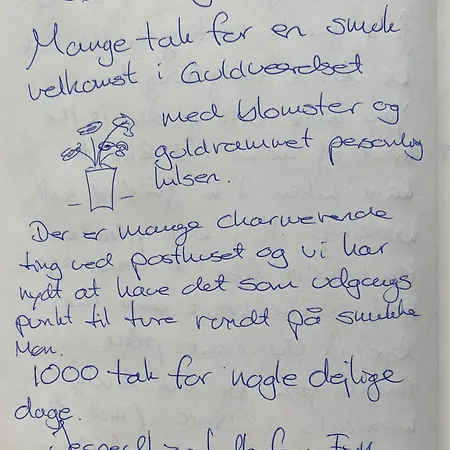 Mange tak for en smuk
velkomst i Guldværelset
med blomster og
guldrammet personlig
hilsen.
Der er mange charmerende
ting ved posthuset og vi har
nydt at have det som udgangs
punkt til ture rundt på smukke
Møn.
1000 tak for nogle dejlige
dage.